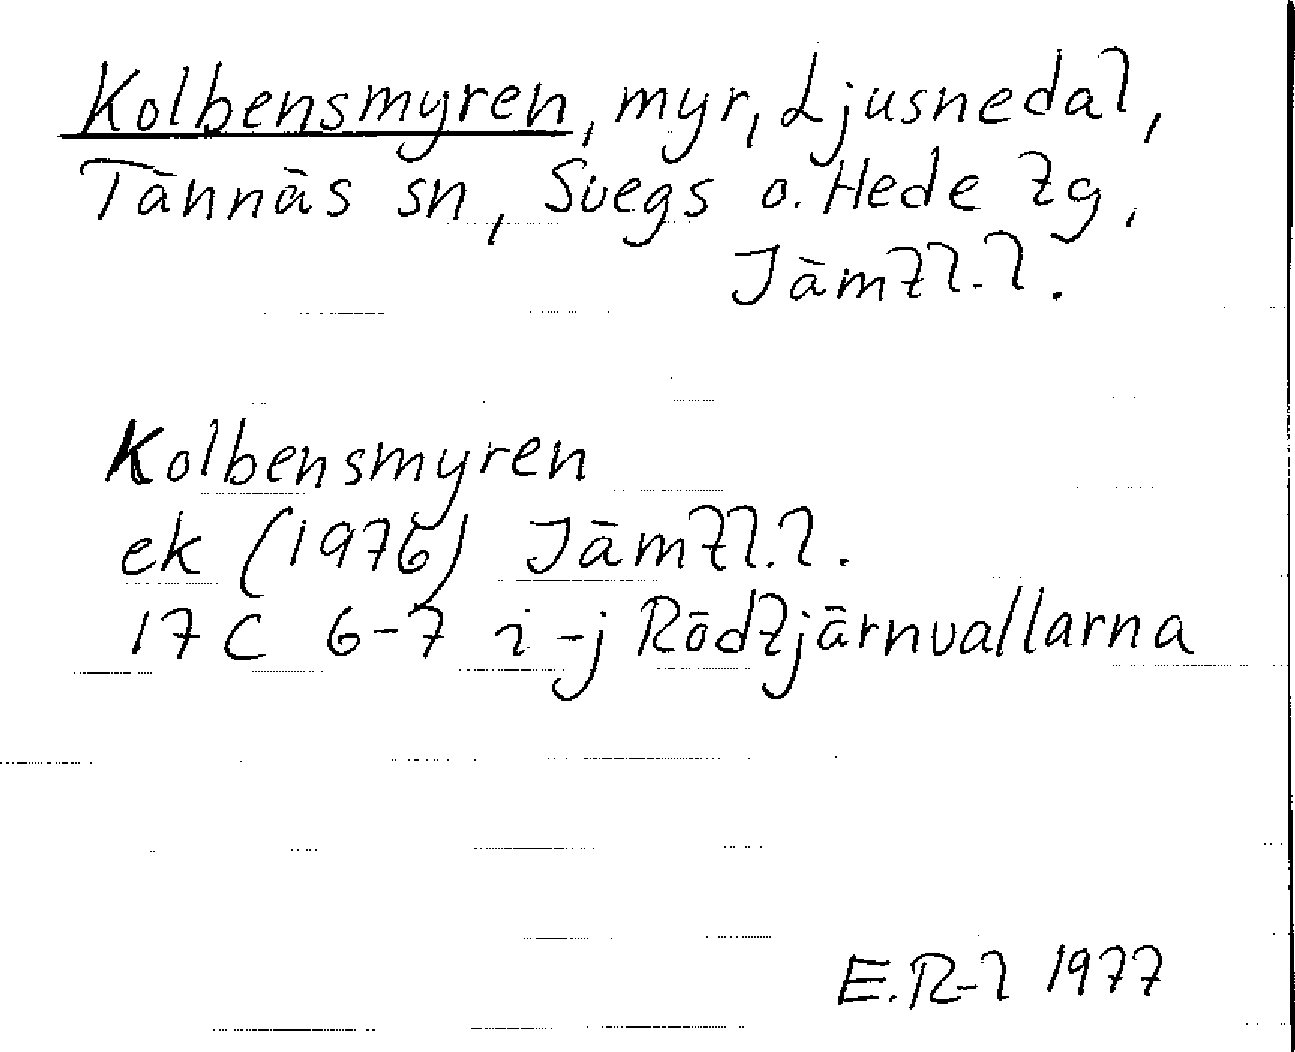 Kolbensmyren, myr, Ljusnedal,
Tännäs sn, Svegs o. Hede tg,
Jämtl. l.
Kolbensmyren
ek (1976) Jämtl. l.
17 C 6-7 i-j Rödtjärnvallarna
E.R-l 1977